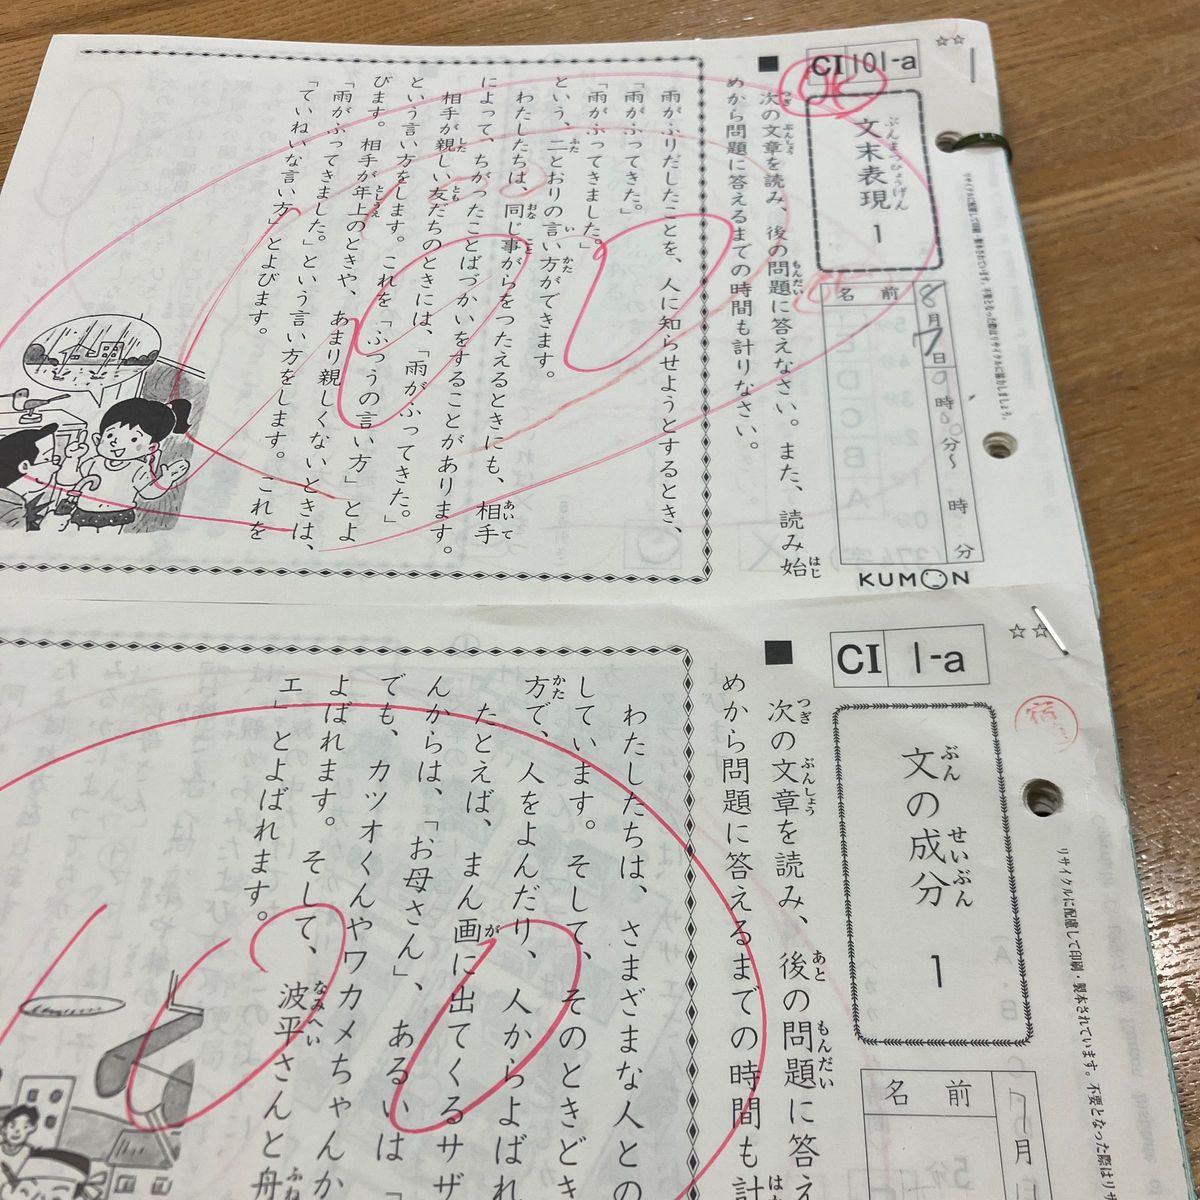 ☆☆
CI 101-a
文末表現 1
ぶんまつひょうげん
8月7日0時00分〜 時 分
名 前
KUMON
リサイクルに配慮して印刷・製本されています。不要となった際はリサイクルに協力しましょう。
■ 次の文章を読み、後の問題に答えなさい。また、読み始
めから問題に答えるまでの時間も計りなさい。
雨がふりだしたことを、人に知らせようとするとき、
「雨がふってきた。」
「雨がふってきました。」
という、二とおりの言い方ができます。
わたしたちは、同じ事がらをつたえるときにも、相手
によって、ちがったことばづかいをすることがあります。
相手が親しい友だちのときには、「雨がふってきた。」
という言い方をします。これを「ふつうの言い方」とよ
びます。相手が年上のときや、あまり親しくないときは、
「雨がふってきました。」という言い方をします。これを
「ていねいな言い方」とよびます。
100
☆☆
CI 1-a
文の成分 1
ぶん せいぶん
7月
名 前
リサイクルに配慮して印刷・製本されています。不要となった際はリサ
■ 次の文章を読み、後の問題に答え
めから問題に答えるまでの時間も計
わたしたちは、さまざまな人との
しています。そして、そのときどき
方で、人をよんだり、人からよばれ
たとえば、まん画に出てくるサザ
んからは、「お母さん」、あるいは「
でも、カツオくんやワカメちゃんか
よばれます。そして、波平さんと舟
エ」とよばれます。
100